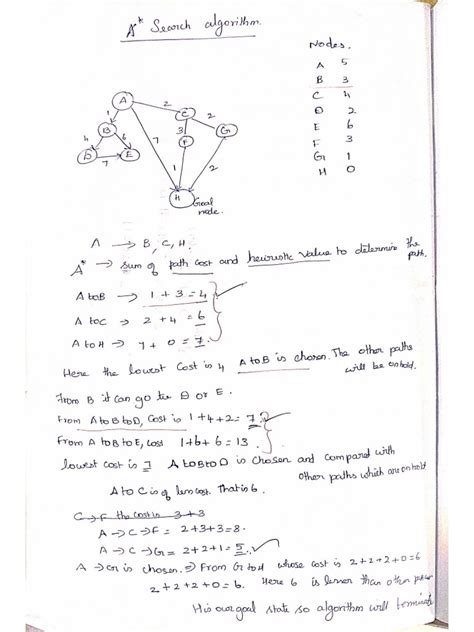 A* Search algorithm.
Nodes.
A 5
B 3
C 4
D 2
E 6
F 3
G 1
H 0
A
2
C
2
1
B
3
G
4
6
7
F
D
7
E
1
2
H
Goal
node.
A → B, C, H.
A* → sum of path cost and heuristic value to determine the
path.
A to B → 1 + 3 = 4
A to C → 2 + 4 = 6
A to H → 7 + 0 = 7
Here the lowest cost is 4 A to B is chosen. The other paths
will be on hold.
From B it can go to D or E.
From A to B to D, cost is 1+4+2 = 7
From A to B to E, cost 1+6+6 = 13.
lowest cost is 7 A to B to D is chosen and compared with
other paths which are on hold
A to C is of less cost. That is 6.
C → F the cost is 3+3
A → C → F = 2+3+3 = 8.
A → C → G = 2+2+1 = 5.
A → G is chosen. → From G to H whose cost is 2+2+2+0=6
2+2+2+0 = 6. Here 6 is lesser than other paths
H is our goal state so algorithm will terminate